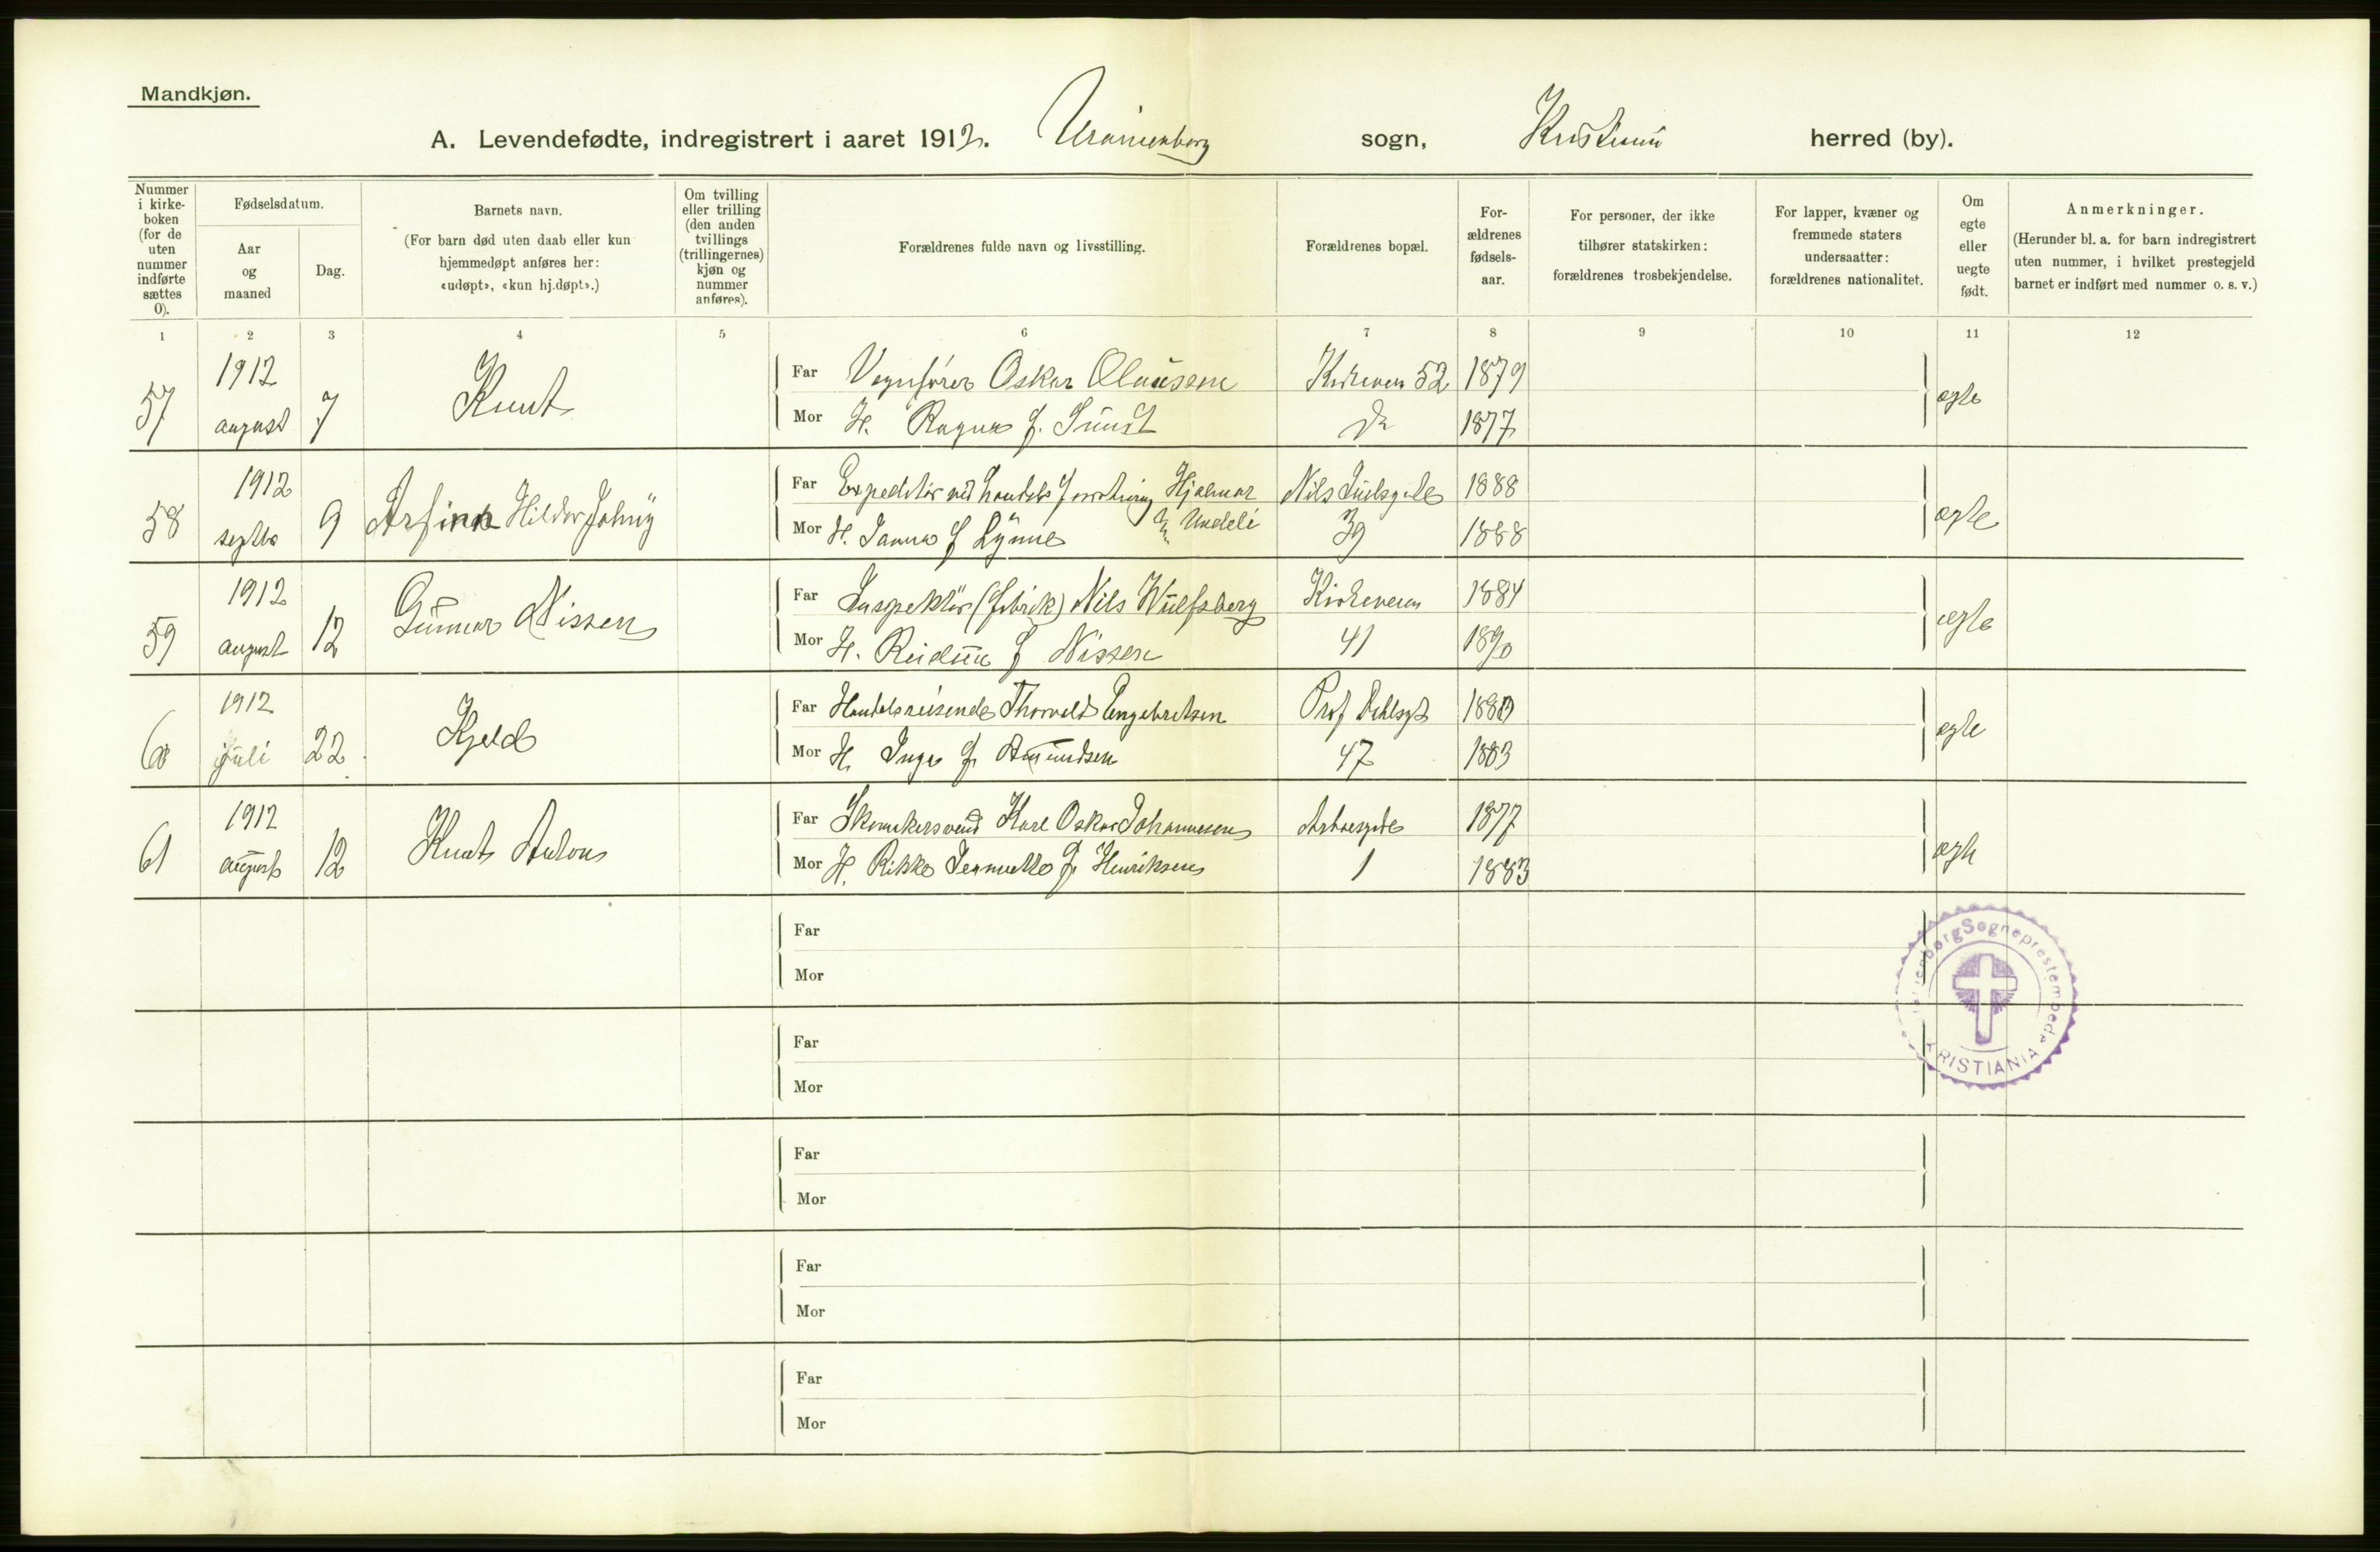 Mandkjøn.
A. Levendefødte, indregistrert i aaret 1912. Uranienborg sogn, Kristiania herred (by).
Nummer i kirke-boken (for de uten nummer indførte sættes 0).
Fødselsdatum.
Aar og maaned
Dag.
Barnets navn.
(For barn død uten daab eller kun hjemmedøpt anføres her: «udøpt», «kun hj.døpt».)
Om tvilling eller trilling (den anden tvillings (trillingernes) kjøn og nummer anføres).
Forældrenes fulde navn og livsstilling.
Forældrenes bopæl.
For-ældrenes fødsels-aar.
For personer, der ikke tilhører statskirken: forældrenes trosbekjendelse.
For lapper, kvæner og fremmede staters undersaatter: forældrenes nationalitet.
Om egte eller uegte født.
Anmerkninger.
(Herunder bl. a. for barn indregistrert uten nummer, i hvilket prestegjeld barnet er indført med nummer o. s. v.)
1 2 3 4 5 6 7 8 9 10 11 12
57 1912 august 7 Knut
Far Vognfører Oskar Olausen Kirkeveien 52 1879
Mor H. Ragna f. Sundt Do 1877
egte
58 1912 septbr 9 Arfinn Hildor Johny
Far Expeditør ved handels forretning Hjalmar Undeli Nils Juelsgade 1888
Mor H. Janna f Lynne 39 1888
egte
59 1912 august 12 Gunnar Nissen
Far Inspektør (fabrik) Nils Wulfsberg Kirkeveien 1884
Mor H. Reidun f Nissen 41 1890
egte
60 1912 juli 22 Kjeld
Far Handelsreisende Thorvald Engebretsen Prof Dahlsgt 1880
Mor H. Inga f. Amundsen 47 1883
egte
61 1912 august 12 Knut Anton
Far Skomakersvend Karl Oskar Johannesen 1877
Mor H. Rikke f. Henriksen 1 1883
egte
Far
Mor
Far
Mor
Far
Mor
Far
Mor
Far
Mor
Uranienborg Sogneprestembede
KRISTIANIA